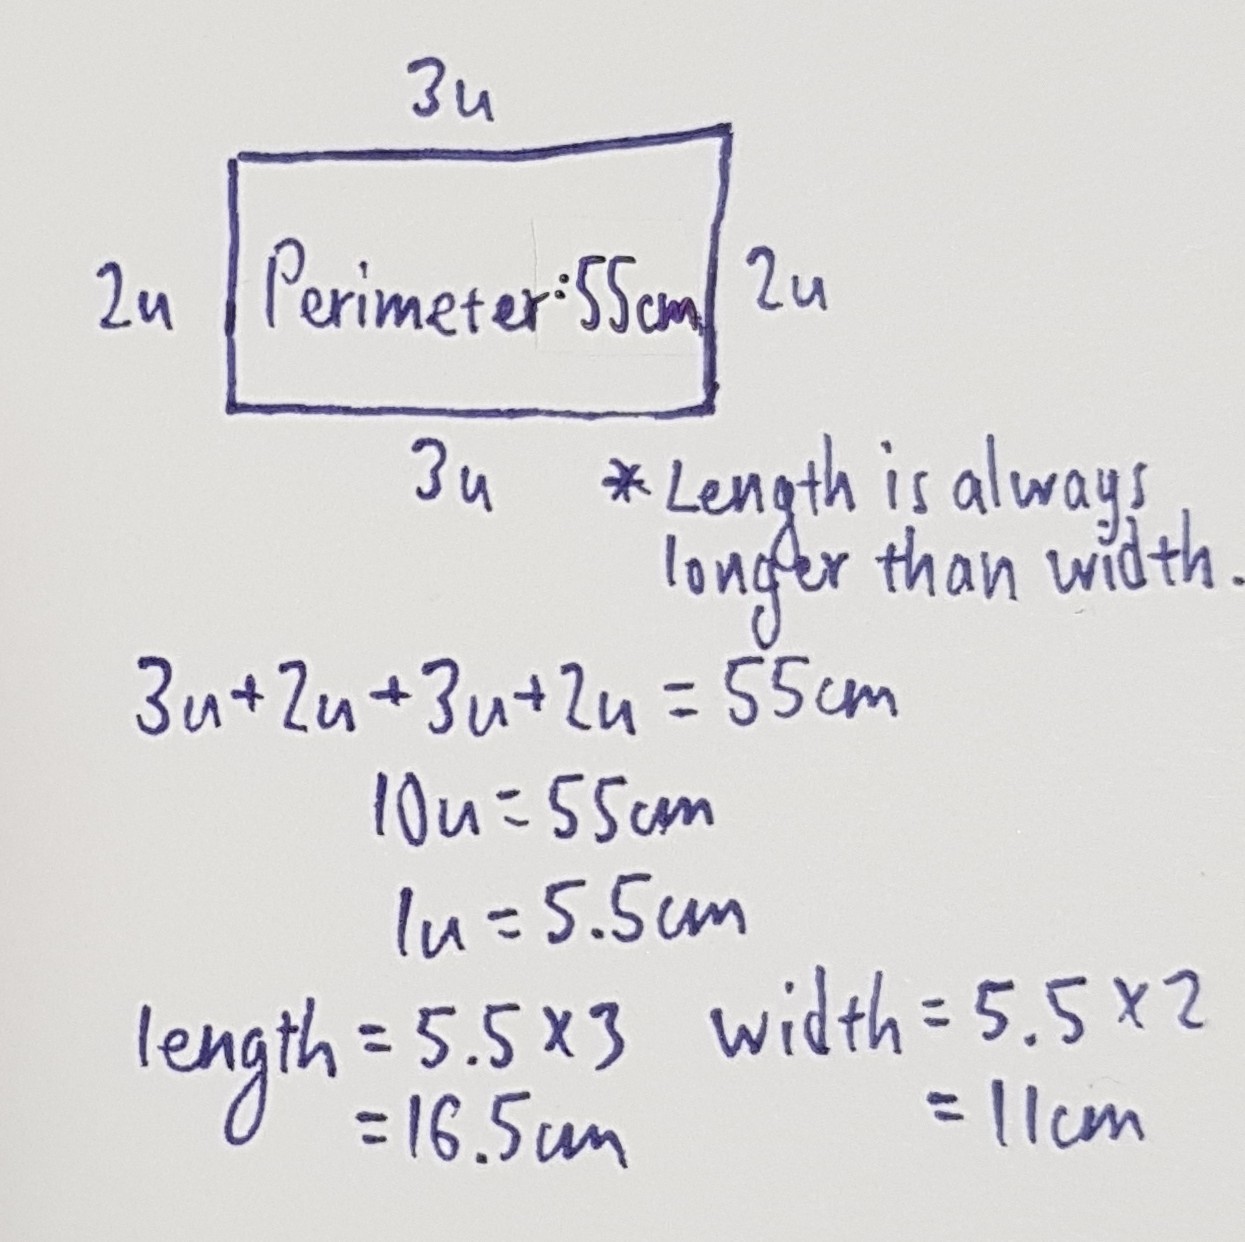 3u
2u Perimeter:55cm 2u
3u
* Length is always
longer than width.
3u+2u+3u+2u = 55cm
10u = 55cm
1u = 5.5cm
length = 5.5 x 3 width = 5.5 x 2
= 16.5cm = 11cm